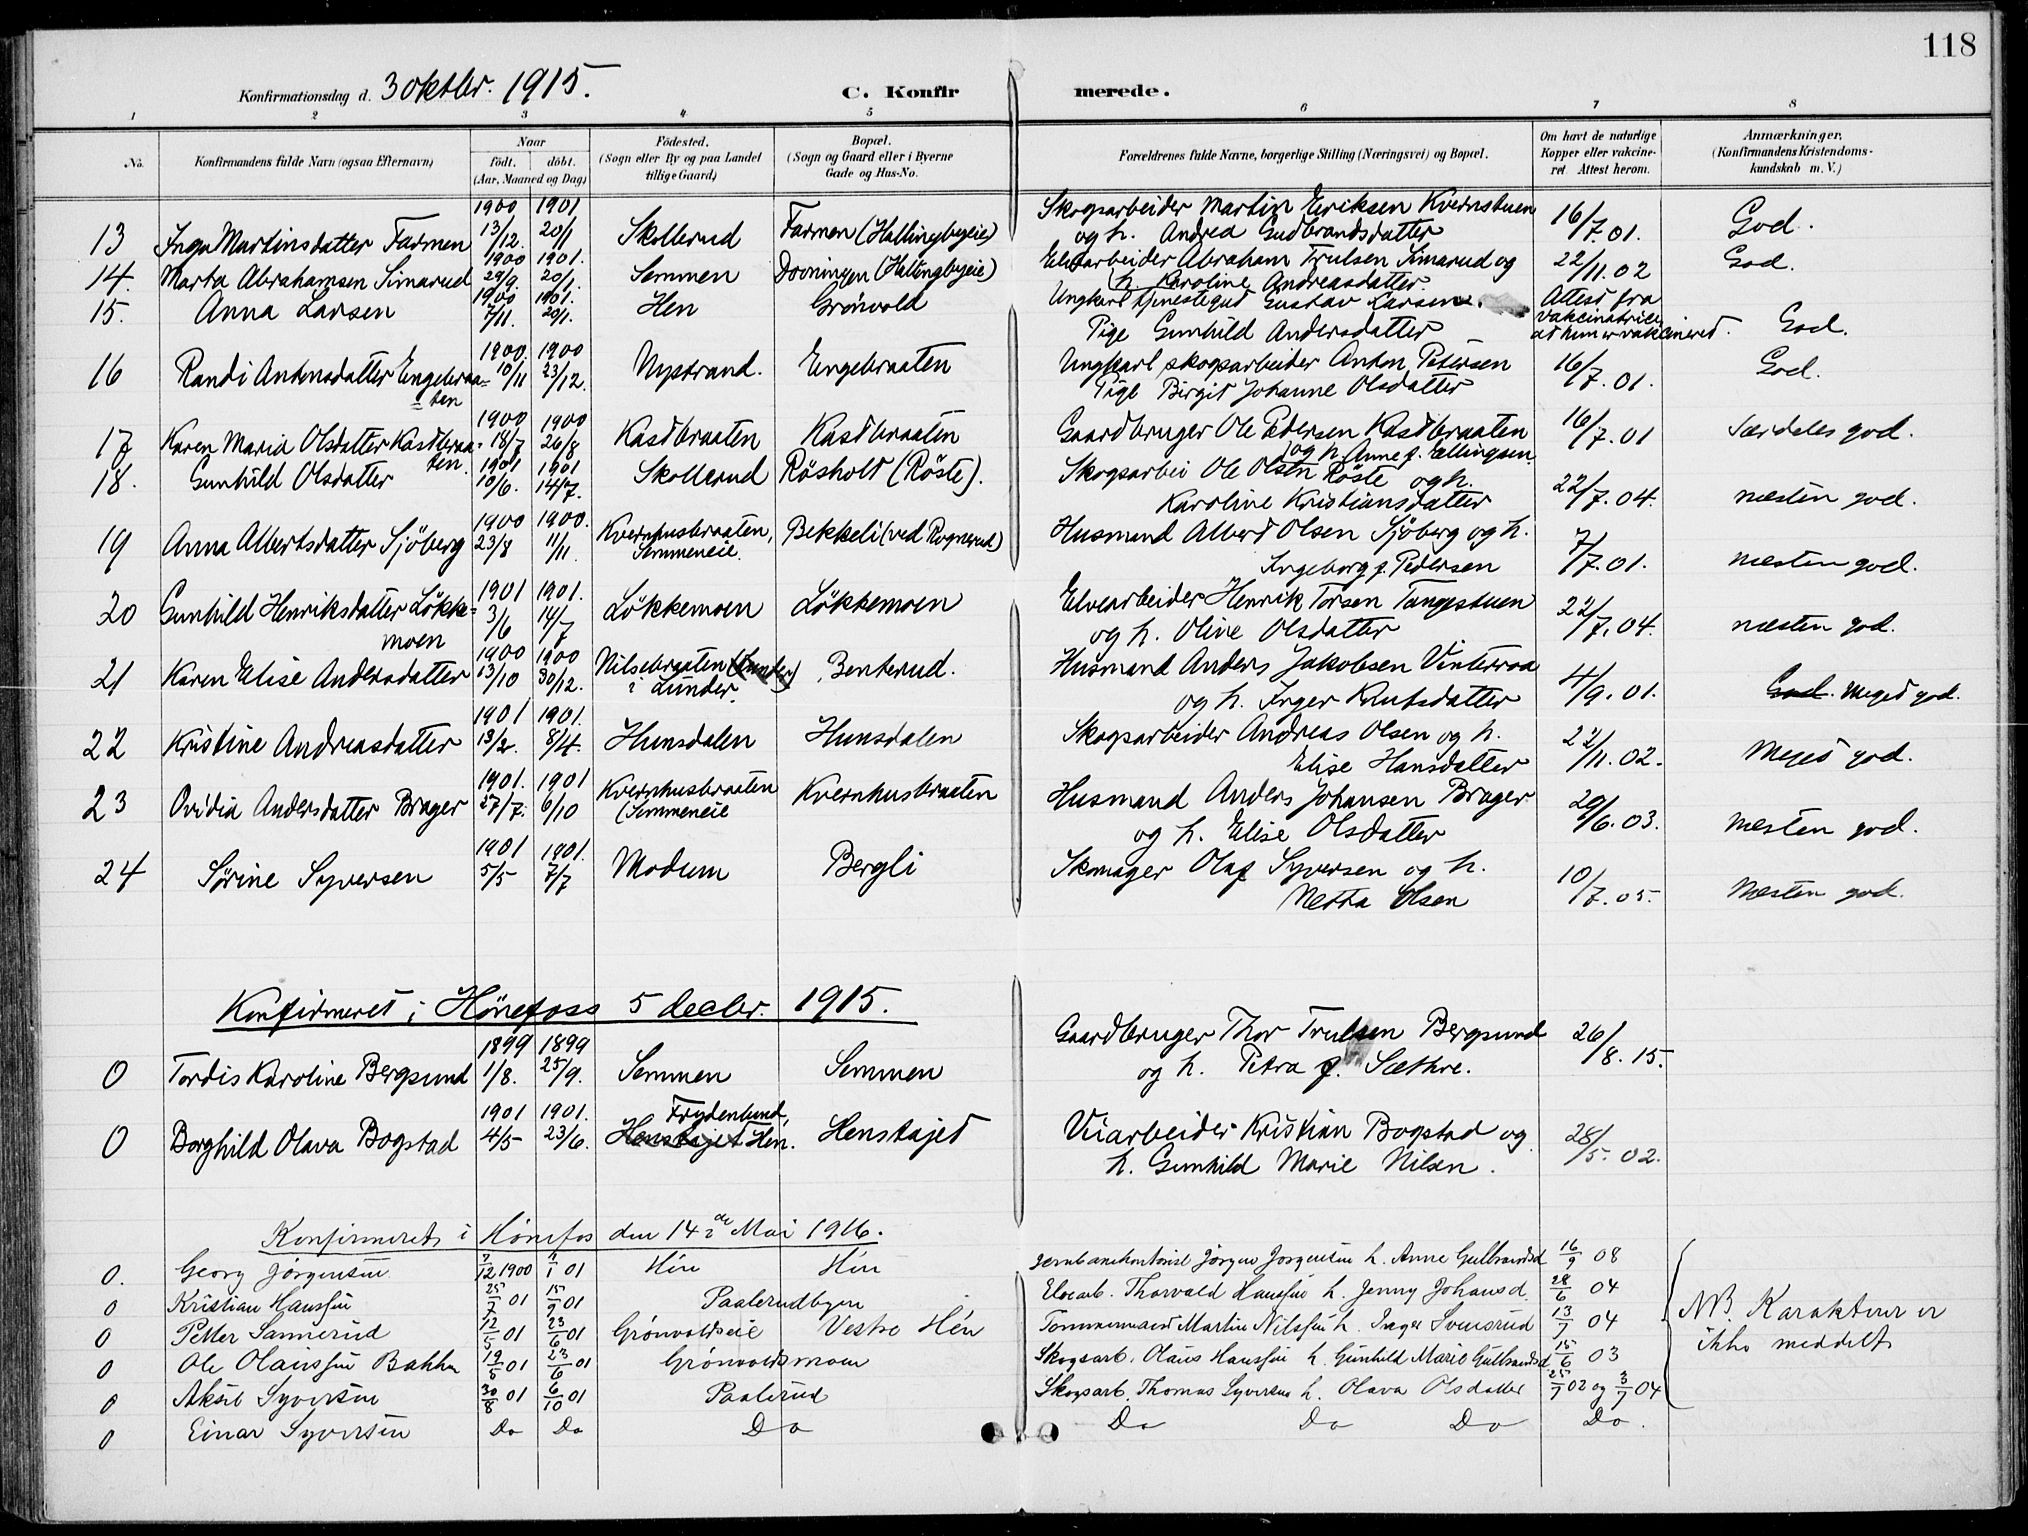 118
Konfirmationsdag d. 3 oktbr. 1915. C. Konfirmerede.
1 2 3 4 5 6 7 8
No. Konfirmandens fulde Navn (ogsaa Efternavn) Naar født. døbt. (Aar, Maaned og Dag) Fødested. (Sogn eller By og paa Landet tillige Gaard) Bopæl. (Sogn og Gaard eller i Byerne Gade og Hus-No. Forældrenes fulde Navne, borgerlige Stilling (Næringsvei) og Bopæl. Om havt de naturlige Kopper eller vakcineret Attest herom. Anmærkninger. (Konfirmandens Kristendomskundskab m. V.)
13 Inga Martinsdatter Farmen 1900 13/12. 1901 20/1 Skollerud Farmen (Hallingbyeie) Skogsarbeider Martin Eriksen Kvernstuen
og h. Andrea Gudbrandsdatter 16/7.01. God.
14. Marta Abrahamsen Simarud 1900 29/9. 1901. 20/1. Semmen (Hallingbyeie) Elvearbeider Abraham Trulsen Simarud og
h. Karoline Andreasdatter. 22/11.02 God.
15. Anna Larsen 1900 7/11. 1901. 20/1. Hen Grönvold Ungkarl tjenestegut Gustav Larsen.
Pige Gunhild Andersdatter Attest fra vakcinatrice at hun er vakcineret. God.
16 Randi Antonsdatter Engebraa=
=ten 1900. 10/11 1900 23/12. Nystrand. Engebraaten Ungkarl skogsarbeider Anton Petersen
Pige Birgit Johanne Olsdatter 16/7.01. God.
17 Karen Maria Olsdatter Kastbraa=
ten. 1900 18/7 1900 26/8 Kastbraaten Kastbraaten Gaardbruger Ole Pedersen Kastbraaten
og h. Anne f. Ellingsen. 16/7.01 Særdeles god.
18. Gunhild Olsdatter 1901 10/6. 1901 14/7. Skollerud Rösholt (Röste). Skogsarbei Ole Olsen Röste og h.
Karoline Kristiansdatter 22/7.04. næsten god.
19 Anna Albertsdatter Sjöberg 1900 23/8 1900. 11/11. Kvernhusbraaten,
Semmeneie. Bekkeli (ved Rognerud) Husmand Albert Olsen Sjöberg og h.
Ingeborg f. Pedersen 7/7.01. næsten god.
20 Gunhild Henriksdatter Løkke=
moen 1901 3/6 1901. 14/7 Løkkemoen Løkkemoen Elvearbeider Henrik Torsen Tangestuen
og h. Olive Olsdatter 22/7.04. næsten god.
21 Karen Elise Andersdatter 1900 13/10 1900 30/12. Nilsebraaten (Lunder)
i Lunder. Benterud. Husmand Anders Jakobsen Vinterraa
og h. Inger Knutsdatter 4/9.01. God. Meget god.
22 Kristine Andreasdatter 1901 13/2. 1901. 8/4. Hunsdalen Hunsdalen Skogsarbeider Andreas Olsen og h.
Elise Hansdatter 22/11.02. Meget god.
23 Ovidia Andersdatter Brager 1901. 27/7. 1901 6/10 Kvernhusbraaten
(Semmeneie Kvernhusbraaten Husmand Anders Johansen Brager
og h. Elise Olsdatter 20/6.03. næsten god.
24 Sørine Syversen 1901 5/5 1901. 7/7 Modum Bergli Skomager Olaf Syversen og h.
Netta Olsen 10/7.05. Næsten god.
Konfirmeret i Hönefoss 5 decbr. 1915.
0 Tordis Karoline Bergsund 1899 1/8. 1899 25/9. Semmen Semmen Gaardbruger Thor Trulsen Bergsund
og h. Petra f. Sæthre. 26/8.15.
0 Borghild Olava Bogstad 1901 4/5 1901. 23/6. Frydenlund, Henstajet Hen. Henstajet Veiarbeider Kristian Bogstad og
h. Gunhild Marie Nilsen. 28/5.02.
Konfirmerets i Hönefos den 14de Mai 1916.
0. Georg Jörgensen 7/12 1900 1/1 01 Hen Hen Jørgen Jorgensen h. Anne Gulbrandsd 16/9 08
0 Kristian Hanssen 25/7 01 15/9 01 Paalerudbyen Elvearb. Thorvald Hanssen h. Jenny Johansd. 28/6 04
0 Petter Sannerud 12/5 01 23/6 01 Grönvoldseie Vestre Hén Tømmermand Martin Nilssen h. Inger Svensrud 13/7 04
0 Ole Olaussen Bakken 19/5 01 23/6 01 Grönvoldsmoen Skogsarb. Olaus Hanssen h. Gunhild Marie Gulbrandsd. 15/6 03
0 Aksel Syversen 30/8 01 6/10 01 Paalerud Skogsarb. Thomas Syversen h. Olava Olsdatter 25/7 02 og 3/7 04
0 Einar Syversen Do Do Do Do Do Do Do.
NB. Karakterer er
ikke meddelt